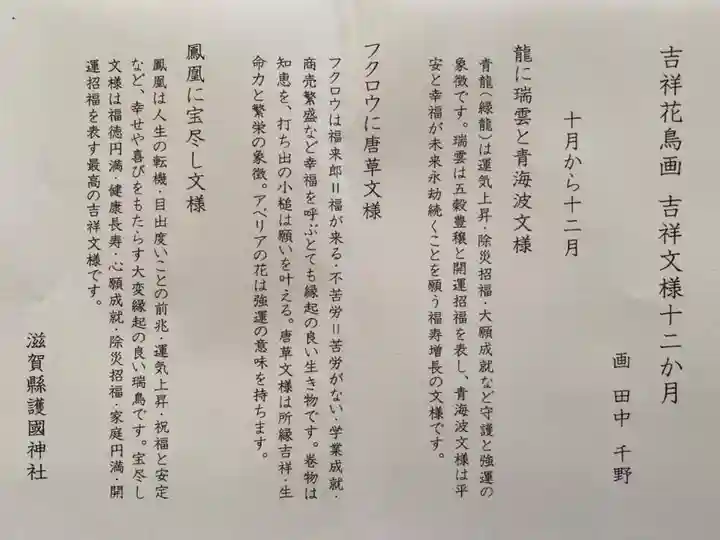 吉祥花鳥画 吉祥文様十二か月
画 田中 千野
十月から十二月
龍に瑞雲と青海波文様
青龍(緑龍)は運気上昇・除災招福・大願成就など守護と強運の
象徴です。瑞雲は五穀豊穣と開運招福を表し、青海波文様は平
安と幸福が未来永劫続くことを願う福寿増長の文様です。
フクロウに唐草文様
フクロウは福来郎＝福が来る・不苦労＝苦労がない・学業成就・
商売繁盛など幸福を呼ぶとても縁起の良い生き物です。巻物は
知恵を、打ち出の小槌は願いを叶える。唐草文様は所縁吉祥・生
命力と繁栄の象徴。アベリアの花は強運の意味を持ちます。
鳳凰に宝尽し文様
鳳凰は人生の転機・目出度いことの前兆・運気上昇・祝福と安定
など、幸せや喜びをもたらす大変縁起の良い瑞鳥です。宝尽し
文様は福徳円満・健康長寿・心願成就・除災招福・家庭円満・開
運招福を表す最高の吉祥文様です。
滋賀縣護國神社